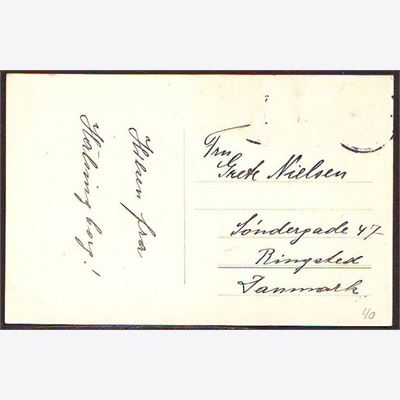 Hilsen fra
Helsingborg!
Fru
Grete Nielsen
Søndergade 47
Ringsted
Danmark.